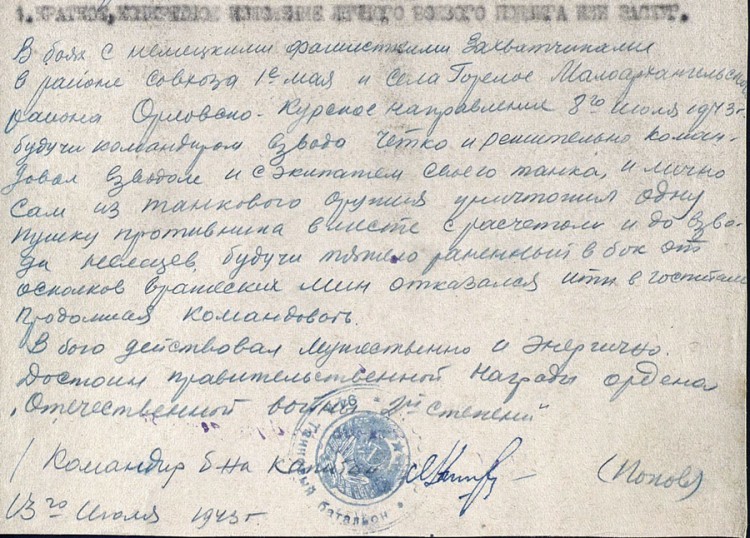 1. КРАТКОЕ, КОНКРЕТНОЕ ИЗЛОЖЕНИЕ ЛИЧНОГО БОЕВОГО ПОДВИГА ИЛИ ЗАСЛУГ.
В боях с немецкими фашисткими Захватчиками
в районе совхоза 1е мая и села Горелое Малоархангельско
района Орловско-Курское направления 8го Июля 1943г.
будучи командиром взвода чётко и решительно коман-
довал взводом и с экипажем своего танка, и лично
сам из танкового оружия уничтожил одну
пушку противника вместе с расчетом и до взво-
да немецев, будучи тяжело раненный в бок от
осколков вражеских мин отказался итти в госпиталь
продолжая командовать.
В бою действовал мужественно и энергично.
Достоин правительственной награды ордена
„Отечественной войны 2й степений"
Командир б-на капитан (Попов)
Танковый батальон
13го Июля 1943г.